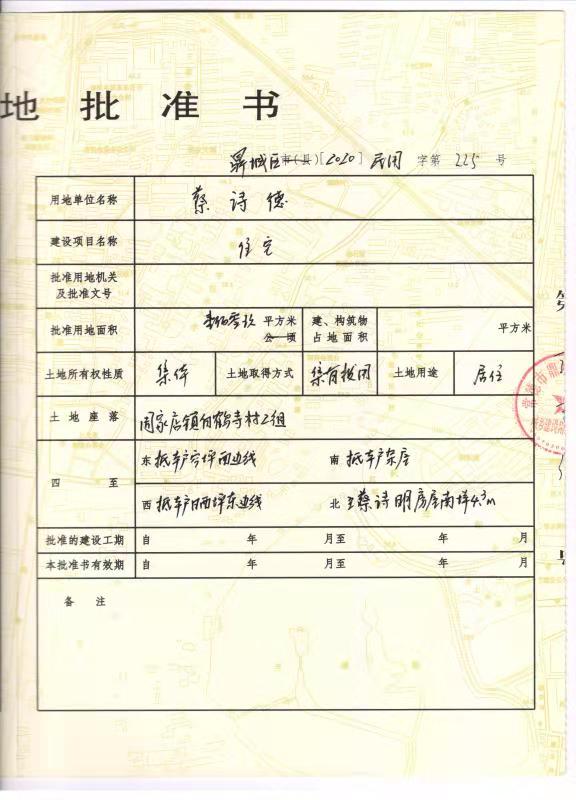 地 批 准 书
鼎城区市(县)[2020] 民用 字第 225 号
用地单位名称 蔡诗德
建设项目名称 住宅
批准用地机关
及批准文号
批准用地面积 平方米 公顷 建、构筑物占地面积 平方米
土地所有权性质 集体 土地取得方式 集有拨用 土地用途 居住
土地座落 周家店镇白鹤寺村2组
四至 东 抵本户空坪西边线 南 抵本户房屋
西 抵本户晒坪东边线 北 至蔡诗明房屋南坪4.3m
批准的建设工期 自 年 月至 年 月
本批准书有效期 自 年 月至 年 月
备 注